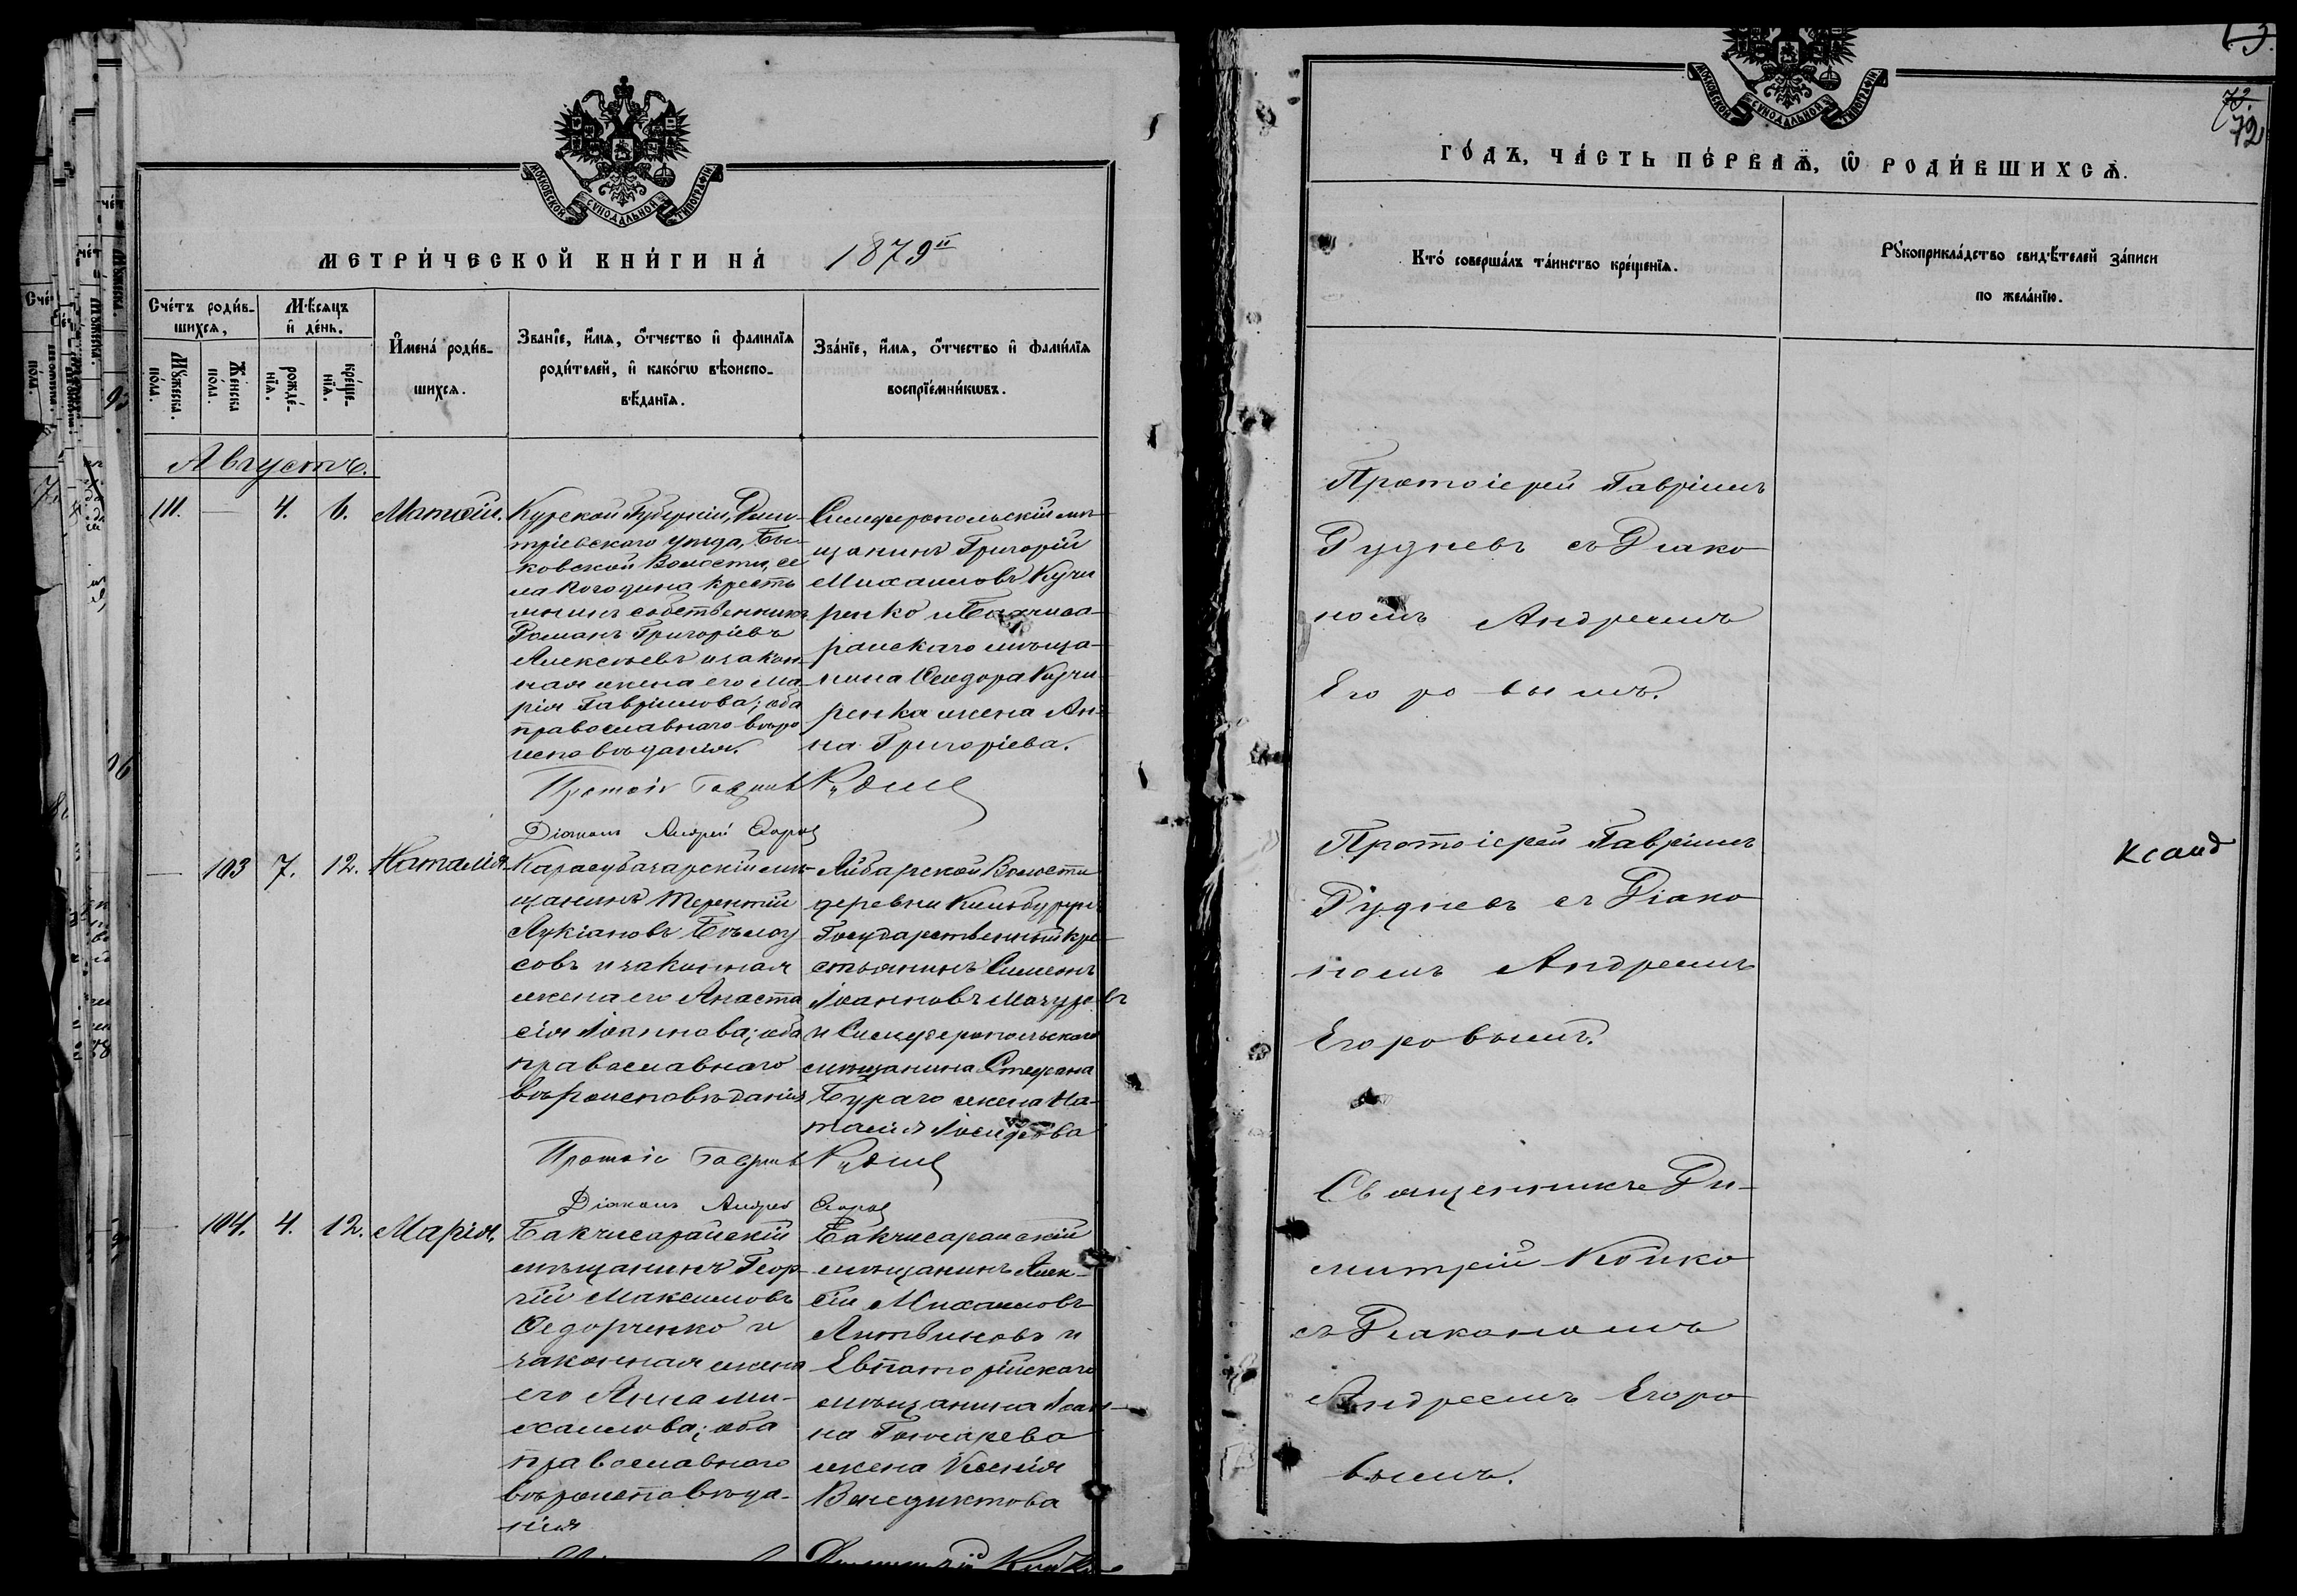 МОСКОВСКОЙ СѴНОДАЛЬНОЙ ТИПОГРАФІИ
МЕТРИ́ЧЕСКОЙ КНИ́ГИ НА́ 1879й
Сче́тъ роди́в-
шихся,
Мѣ́сяцъ
и҆ де́нь.
Мꙋ́жеска.
по́ла.
Же́нска
по́ла.
рожде́-
нїѧ.
креще-
нїѧ.
И҆мена́ роди́в-
шихсѧ.
Зва́нїе, и҆́мѧ, ѻ҆́тчество и҆ фами́лїѧ
роди́телей, и҆ како́гѡ вѣроиспо-
вѣ́данїѧ.
Зва́нїе, и҆́мѧ, ѻ҆́тчество и҆ фами́лїѧ
воспрїе́мникѡвъ.
Августъ.
111. — 4. 6. Матѳій.
Курской Губерніи, Дми-
тріевскаго уѣзда,
ковской Волости, се
ла Погодина кресть
янинъ собственникъ
Романъ Григоріевъ
Алексѣевъ и закон-
ная жена его Ма-
рія Гавріилова; оба
православнаго вѣро
исповѣданія.
Симферопольскій мѣ-
щанинъ Григорій
Михаиловъ Кучи
ренко и Бахчиса-
райскаго мѣща-
нина Ѳеодора Кучи
ренка жена Ан-
на Григоріева.
Протоіе Гавріилъ Руднев
Діаконъ Андрей Егоров
— 103 7. 12. Наталія
Карасубазарскій мѣ-
щанинъ Терентій
Лукіановъ Бѣлоу
совъ и законная
жена его Анаста
сія Іоаннова; оба
православнаго
вѣроисповѣданія
Айбарской Волости
деревни
Государственный кре-
стьянинъ Симеонъ
Іоанновъ Мазуровъ
и Симферопольскаго
мѣщанина Стефана
Бураго жена На-
талія
Протоіе Гавріилъ Руднев
Діаконъ Андрей Егоров
— 104. 4. 12. Марія.
Бакчисарайскій
мѣщанинъ Геор-
гій Максимовъ
Ѳедорченко и
законная жена
его Анна Ми-
хаилова; оба
православнаго
вѣроисповѣда-
нія
Бакчисарайскій
мѣщанинъ Алек-
сій Михаиловъ
Литвиновъ и
Евпаторійскаго
мѣщанина Іоан-
на Гончарева
жена Ксенія
Венедиктова
Димитрій Койко
МОСКОВСКОЙ СѴНОДАЛЬНОЙ ТИПОГРАФІИ
73.
72
ГО́ДЪ, ЧА́СТЬ ПЕ́РВАѦ, Ѡ҆ РОДИ́ВШИХСѦ.
Кто́ соверша́лъ та́инство креще́нїѧ.
Рꙋкоприкла́дство свидѣ́телей за́писи
по жела́нїю.
Протоіерей Гавріилъ
Рудневъ съ Діако
номъ Андреемъ
Егоровымъ.
Протоіерей Гавріилъ
Рудневъ съ Діако
номъ Андреемъ
Егоровымъ.
Священникъ Ди-
митрій Койко
съ Діакономъ
Андреемъ Егоро
вымъ.
ксанд